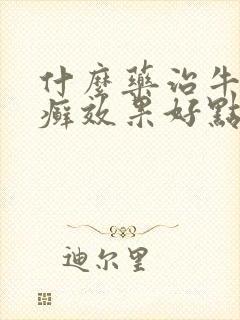 什麼藥治牛
癬效果好點
迪尔里